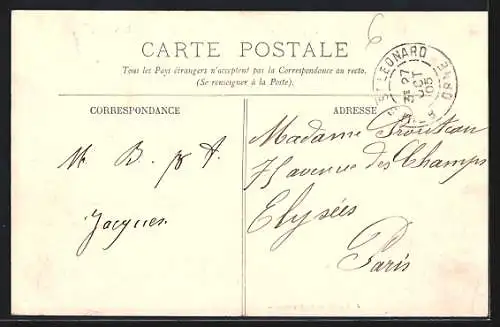 CARTE POSTALE
Tous les Pays étrangers n'acceptent pas la Correspondance au recto.
(Se renseigner à la Poste).
CORRESPONDANCE
ADRESSE
ST LEONARD
27
OCT
05
ORNE
M. B. p A.
Jacques
Madame
75 avenue des Champs
Elysées
Paris